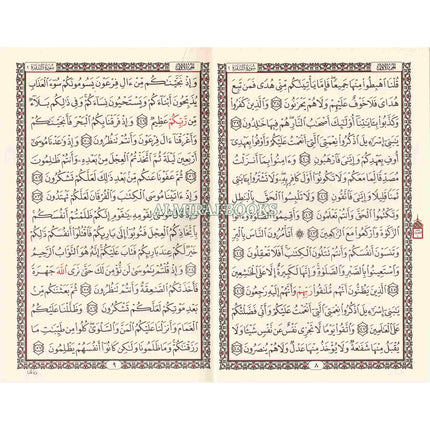 سورة البقرة
قُلْنَا اهْبِطُوا مِنْهَا جَمِيعًا فَإِمَّا يَأْتِيَنَّكُم مِّنِّى هُدًى فَمَن تَبِعَ
هُدَاىَ فَلَا خَوْفٌ عَلَيْهِمْ وَلَا هُمْ يَحْزَنُونَ وَالَّذِينَ كَفَرُوا
وَكَذَّبُوا بِـَٔايَٰتِنَا أُولَٰئِكَ أَصْحَٰبُ النَّارِ هُمْ فِيهَا خَٰلِدُونَ
يَٰبَنِى إِسْرَٰءِيلَ اذْكُرُوا نِعْمَتِىَ الَّتِى أَنْعَمْتُ عَلَيْكُمْ وَأَوْفُوا بِعَهْدِى
أُوفِ بِعَهْدِكُمْ وَإِيَّٰىَ فَارْهَبُونِ وَءَامِنُوا بِمَا أَنزَلْتُ
مُصَدِّقًا لِّمَا مَعَكُمْ وَلَا تَكُونُوا أَوَّلَ كَافِرٍ بِهِ وَلَا تَشْتَرُوا بِـَٔايَٰتِى
ثَمَنًا قَلِيلًا وَإِيَّٰىَ فَاتَّقُونِ وَلَا تَلْبِسُوا الْحَقَّ بِالْبَٰطِلِ
وَتَكْتُمُوا الْحَقَّ وَأَنتُمْ تَعْلَمُونَ وَأَقِيمُوا الصَّلَوٰةَ وَءَاتُوا
الزَّكَوٰةَ وَارْكَعُوا مَعَ الرَّٰكِعِينَ أَتَأْمُرُونَ النَّاسَ بِالْبِرِّ
وَتَنسَوْنَ أَنفُسَكُمْ وَأَنتُمْ تَتْلُونَ الْكِتَٰبَ أَفَلَا تَعْقِلُونَ
وَاسْتَعِينُوا بِالصَّبْرِ وَالصَّلَوٰةِ وَإِنَّهَا لَكَبِيرَةٌ إِلَّا عَلَى الْخَٰشِعِينَ
الَّذِينَ يَظُنُّونَ أَنَّهُم مُّلَٰقُوا رَبِّهِمْ وَأَنَّهُمْ إِلَيْهِ رَٰجِعُونَ
يَٰبَنِى إِسْرَٰءِيلَ اذْكُرُوا نِعْمَتِىَ الَّتِى أَنْعَمْتُ عَلَيْكُمْ وَأَنِّى فَضَّلْتُكُمْ
عَلَى الْعَٰلَمِينَ وَاتَّقُوا يَوْمًا لَّا تَجْزِى نَفْسٌ عَن نَّفْسٍ شَيْـًٔا وَلَا
يُقْبَلُ مِنْهَا شَفَٰعَةٌ وَلَا يُؤْخَذُ مِنْهَا عَدْلٌ وَلَا هُمْ يُنصَرُونَ
٨
سورة البقرة
وَإِذْ نَجَّيْنَٰكُم مِّنْ ءَالِ فِرْعَوْنَ يَسُومُونَكُمْ سُوءَ الْعَذَابِ
يُذَبِّحُونَ أَبْنَاءَكُمْ وَيَسْتَحْيُونَ نِسَاءَكُمْ وَفِى ذَٰلِكُم بَلَاءٌ
مِّن رَّبِّكُمْ عَظِيمٌ وَإِذْ فَرَقْنَا بِكُمُ الْبَحْرَ فَأَنجَيْنَٰكُمْ
وَأَغْرَقْنَا ءَالَ فِرْعَوْنَ وَأَنتُمْ تَنظُرُونَ وَإِذْ وَٰعَدْنَا مُوسَىٰ
أَرْبَعِينَ لَيْلَةً ثُمَّ اتَّخَذْتُمُ الْعِجْلَ مِن بَعْدِهِ وَأَنتُمْ ظَٰلِمُونَ
ثُمَّ عَفَوْنَا عَنكُم مِّن بَعْدِ ذَٰلِكَ لَعَلَّكُمْ تَشْكُرُونَ
وَإِذْ ءَاتَيْنَا مُوسَى الْكِتَٰبَ وَالْفُرْقَانَ لَعَلَّكُمْ تَهْتَدُونَ
وَإِذْ قَالَ مُوسَىٰ لِقَوْمِهِ يَٰقَوْمِ إِنَّكُمْ ظَلَمْتُمْ أَنفُسَكُم
بِاتِّخَاذِكُمُ الْعِجْلَ فَتُوبُوا إِلَىٰ بَارِئِكُمْ فَاقْتُلُوا أَنفُسَكُمْ ذَٰلِكُمْ
خَيْرٌ لَّكُمْ عِندَ بَارِئِكُمْ فَتَابَ عَلَيْكُمْ إِنَّهُ هُوَ التَّوَّابُ الرَّحِيمُ
وَإِذْ قُلْتُمْ يَٰمُوسَىٰ لَن نُّؤْمِنَ لَكَ حَتَّىٰ نَرَى اللَّهَ جَهْرَةً
فَأَخَذَتْكُمُ الصَّٰعِقَةُ وَأَنتُمْ تَنظُرُونَ ثُمَّ بَعَثْنَٰكُم مِّن
بَعْدِ مَوْتِكُمْ لَعَلَّكُمْ تَشْكُرُونَ وَظَلَّلْنَا عَلَيْكُمُ
الْغَمَامَ وَأَنزَلْنَا عَلَيْكُمُ الْمَنَّ وَالسَّلْوَىٰ كُلُوا مِن طَيِّبَٰتِ مَا
رَزَقْنَٰكُمْ وَمَا ظَلَمُونَا وَلَٰكِن كَانُوا أَنفُسَهُمْ يَظْلِمُونَ
٩